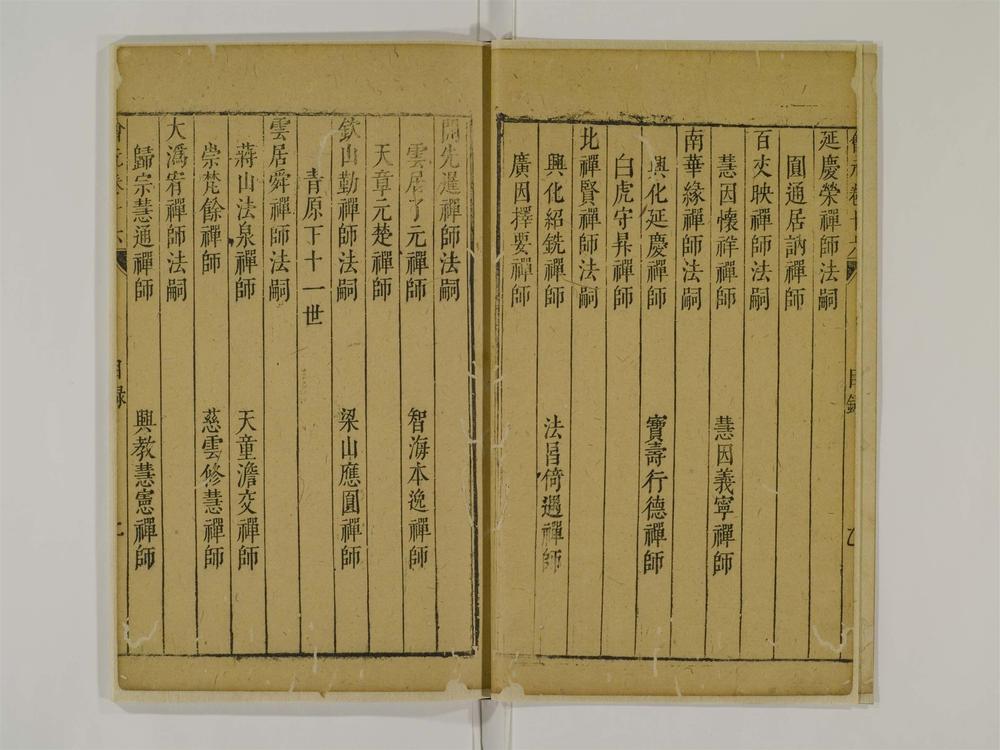 延慶榮禪師法嗣
圓通居訥禪師
百丈映禪師法嗣
慧因懷祥禪師　慧因義寧禪師
南華緣禪師法嗣
興化延慶禪師　寶壽行德禪師
白虎守昇禪師
北禪賢禪師法嗣
興化紹銑禪師　法昌倚遇禪師
廣因擇要禪師
開先暹禪師法嗣
雲居了元禪師　智海本逸禪師
天章元楚禪師
欽山勤禪師法嗣　梁山應圓禪師
青原下十一世
雲居舜禪師法嗣
蔣山法泉禪師　天童澹交禪師
崇梵餘禪師　慈雲修慧禪師
大溈宥禪師法嗣
歸宗慧通禪師　興教慧憲禪師
目錄